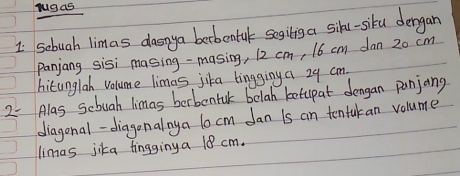 Tugas
1. Sebuah limas dasnya berbentuk segitiga siku-siku dengan
panjang sisi masing-masing, 12 cm, 16 cm dan 20 cm
hitunglah volume limas jika tingginya 24 cm.
2- Alas sebuah limas berbentuk belah ketupat dengan panjang
diagonal-diagonalnya 10 cm dan 15 cm tentukan volume
limas jika tingginya 18 cm.